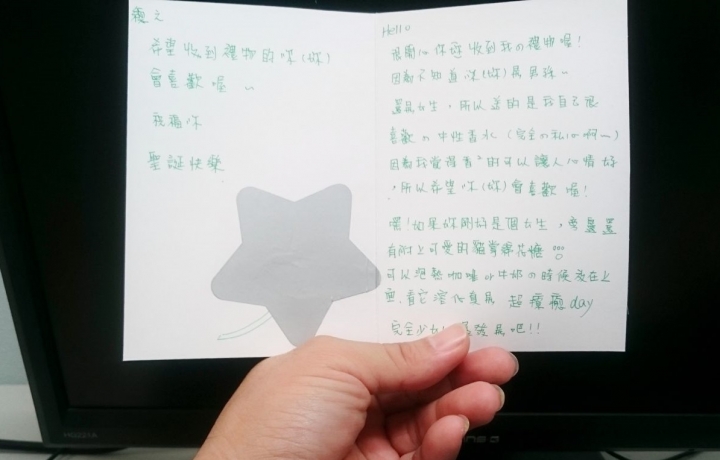 希望收到禮物的你(妳)
會喜歡喔~
祝福你
聖誕快樂
Hello
很開心你能收到我的禮物喔!
因為不知道你(妳)是男孩~
還是女生,所以送的是我自己很
喜歡の中性香水(完全の私心啊~)
因為我覺得香的可以讓人心情好
,所以希望你(妳)會喜歡喔!
嘿!如果妳剛好是個女生,旁邊還
有附上可愛的貓掌棉花糖
可以泡熱咖啡or牛奶の時候放在上
面,看它溶化真是 超療癒day
完全少女
吧!!